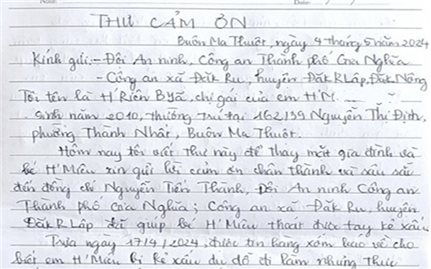 THƯ CẢM ƠN
Buôn Ma Thuột, ngày 4 tháng 5 năm 2024
Kính gửi: - Đội An ninh, Công an Thành phố Gia Nghĩa
- Công an xã Đăk Ru, huyện Đăk R Lấp, Đăk Nông
Tôi tên là H' Riên Byă, chị gái của em H'M....
sinh năm 2010, thường trú tại 162/39 Nguyễn Thị Định,
phường Thành Nhất, Buôn Ma Thuột.
Hôm nay tôi viết thư này để thay mặt gia đình và
bé H' Miêu xin gửi lời cảm ơn chân thành và sâu sắc
đến đồng chí Nguyễn Tiến Thành, Đội An ninh Công an
Thành phố Gia Nghĩa; Công an xã Đăk Ru, huyện
Đăk R Lấp đã giúp bé H' Miêu thoát được tay kẻ xấu
Trưa ngày 17/4/2024, được tin hàng xóm báo về cho
biết em H' Miêu bị kẻ xấu dụ dỗ đi làm nhưng thực